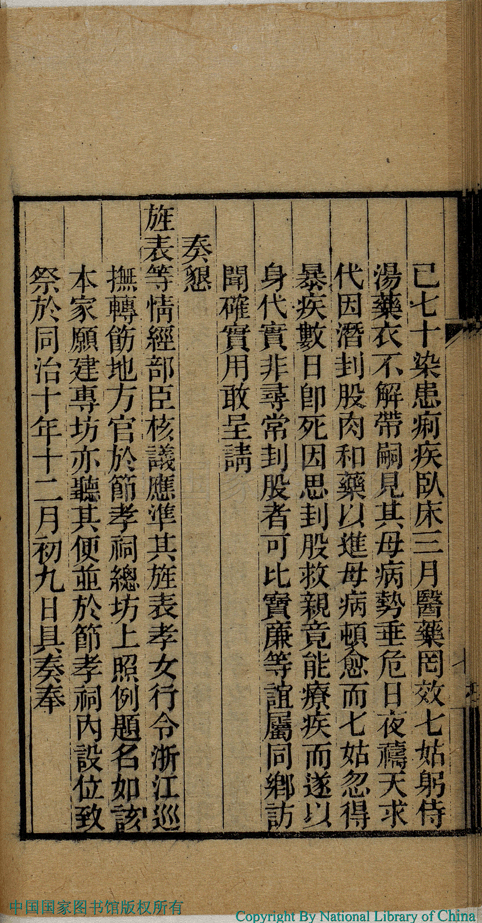 已七十染患痢疾臥床三月醫藥罔效七姑躬侍
湯藥衣不解帶嗣見其母病勢垂危日夜禱天求
代因潛刲股肉和藥以進母病頓愈而七姑忽得
暴疾數日卽死因思刲股救親竟能療疾而遂以
身代實非尋常刲股者可比寳廉等誼屬同鄕訪
聞確實用敢呈請
奏懇
旌表等情經部臣核議應準其旌表孝女行令浙江巡
撫轉飭地方官於節孝祠總坊上照例題名如該
本家願建專坊亦聽其便並於節孝祠內設位致
祭於同治十年十二月初九日具奏奉
中国国家图书馆版权所有
Copyright By National Library of China